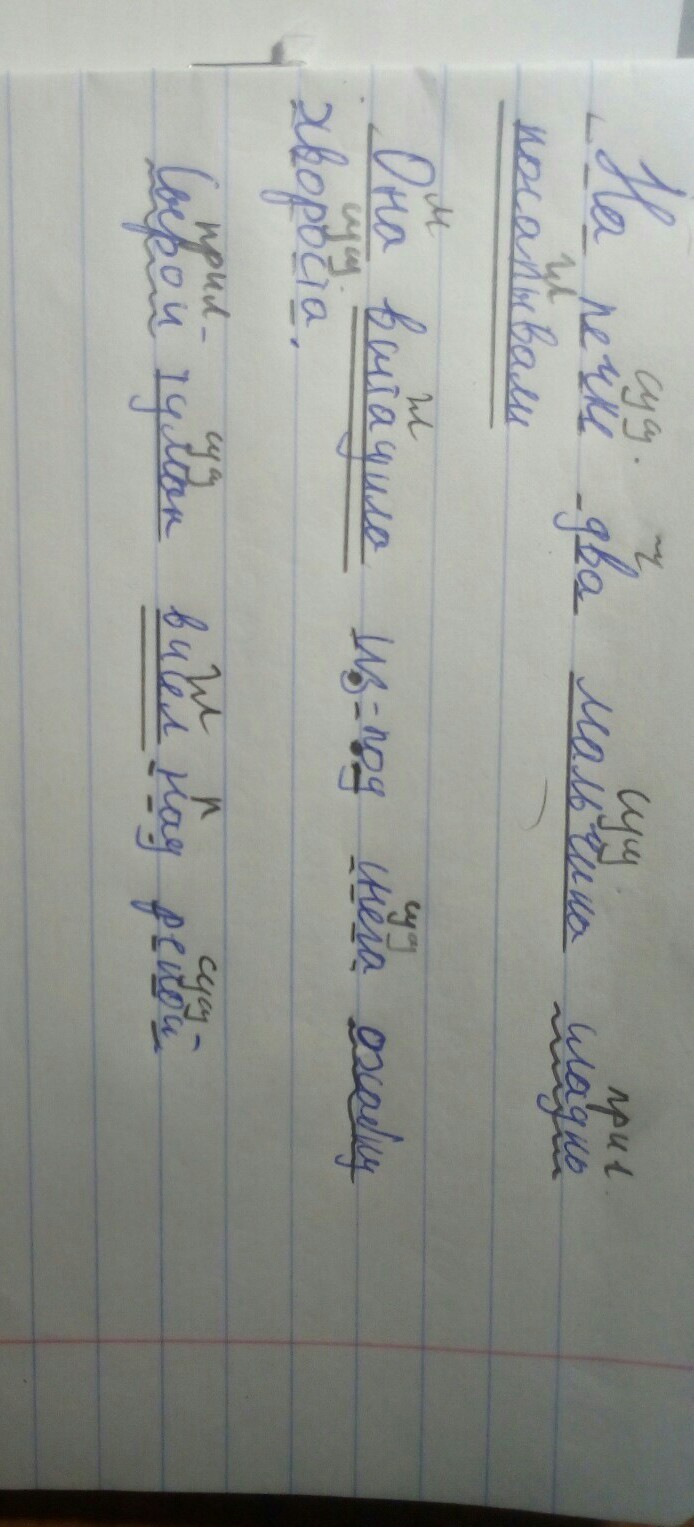 На печке два мальчика сладко
сущ. ч сущ. прил.
похапывали
гл
Она вытащила из-под снега охабку
м гл сущ
хвороста.
сущ.
Сырой туман висел над рекой
прил- сущ гл п сущ-